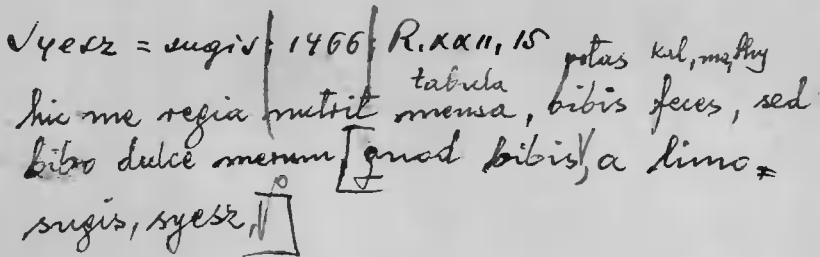 Syesz = sugis | 1466 | R. XXII, 15
potas
tabula
hic me regia nutrit mensa, bibis feces, sed
bibo dulce merum [quod bibis, a limo=
sugis, syesz, ]